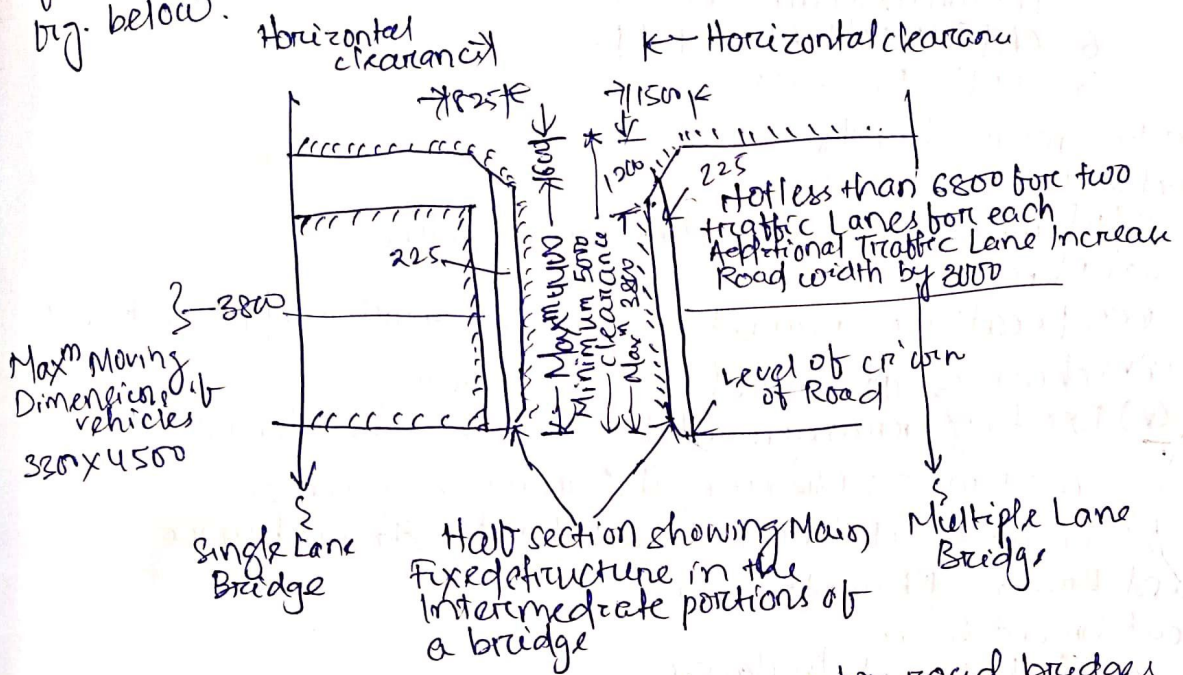 fig. below.
Horizontal
clearance
Horizontal clearance
825
1500
600
1200
225
Not less than 6800 for two
traffic Lanes for each
Additional Traffic Lane Increase
Road width by
225
3800
Maxm 4400
Minimum 5000
clearance
Maxm 3800
Maxm Moving
Dimension of
vehicles
3300 X 4500
Level of crown
of Road
Single Lane
Bridge
Half section showing Main
Fixed structure in the
Intermediate portions of
a bridge
Multiple Lane
Bridge
road bridges